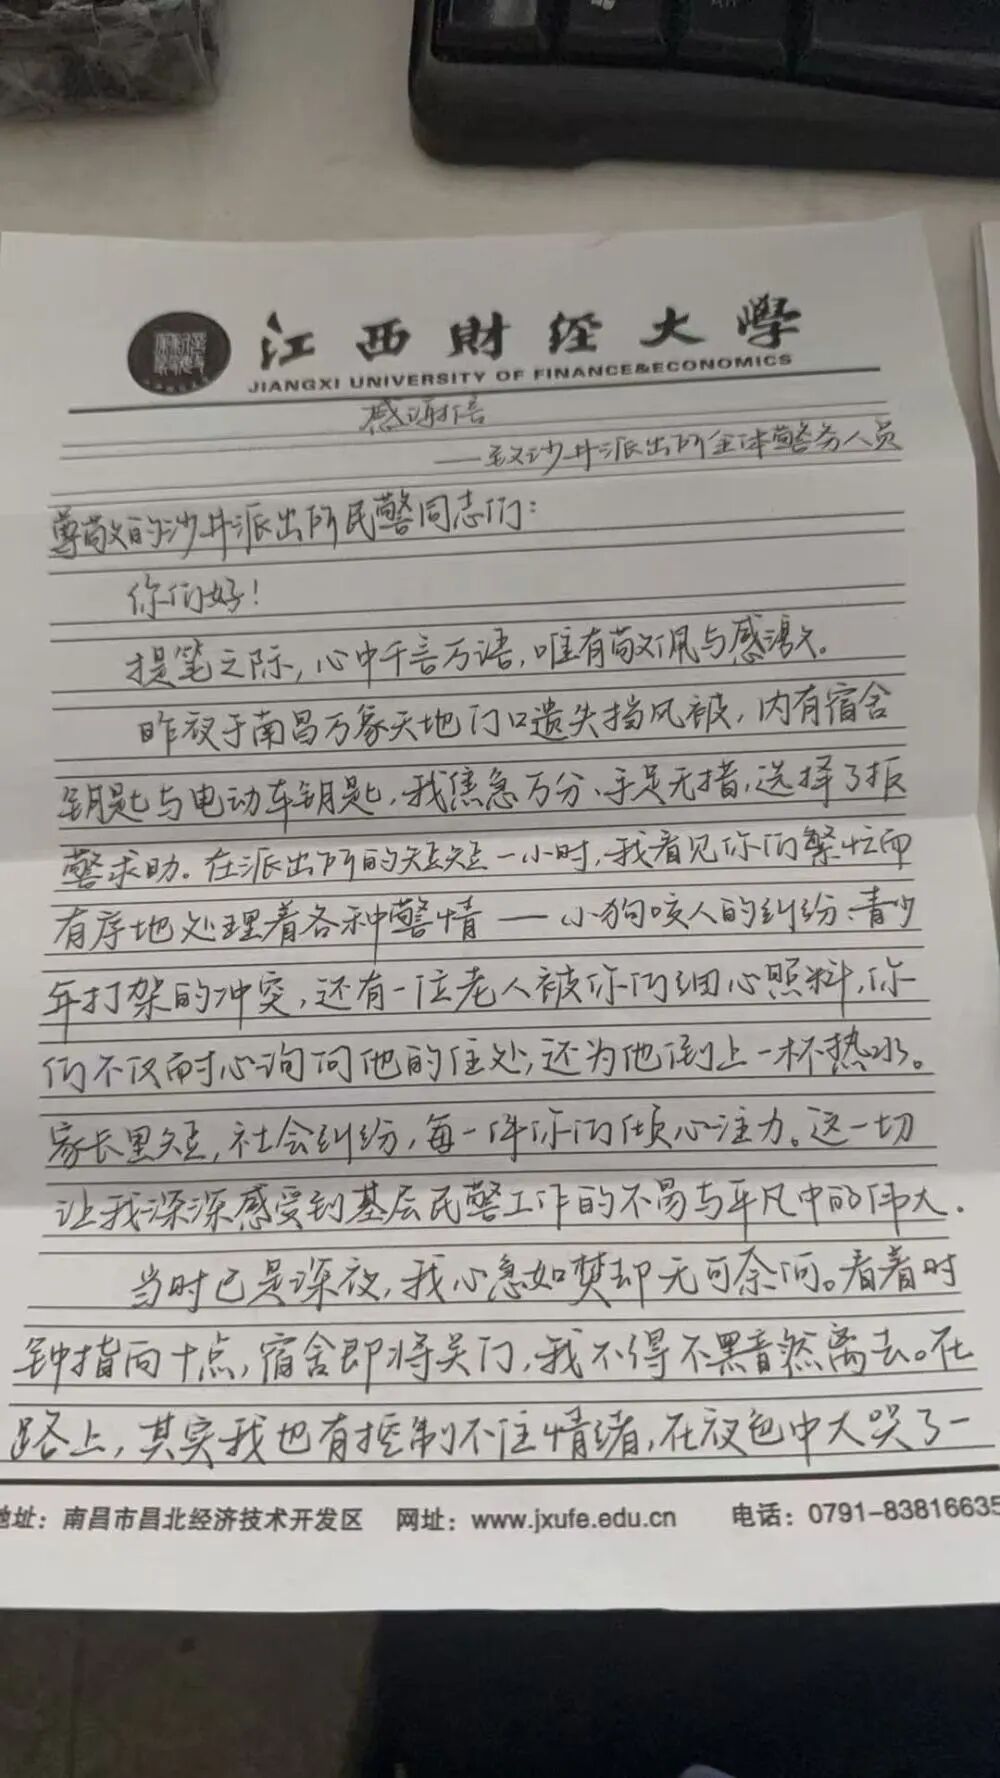 江西財经大學
JIANGXI UNIVERSITY OF FINANCE&ECONOMICS
感谢信
——致沙井派出所全体警务人员
尊敬的沙井派出所民警同志们:
你们好!
提笔之际,心中千言万语,唯有敬佩与感激。
昨夜于南昌万象天地门口遗失挡风被,内有宿舍
钥匙与电动车钥匙,我焦急万分、手足无措,选择了报
警求助。在派出所的短短一小时,我看见你们繁忙而
有序地处理着各种警情——小狗咬人的纠纷、青少
年打架的冲突,还有一位老人被你们细心照料,你
们不仅耐心询问他的住处,还为他倒上一杯热水。
家长里短,社会纠纷,每一件你们倾心注力。这一切
让我深深感受到基层民警工作的不易与平凡中的伟大.
当时已是深夜,我心急如焚却无可奈何。看着时
钟指向十点,宿舍即将关门,我不得不黯然离去。在
路上,其实我也有控制不住情绪,在夜色中大哭了一
地址：南昌市昌北经济技术开发区 网址：www.jxufe.edu.cn 电话：0791-83816635